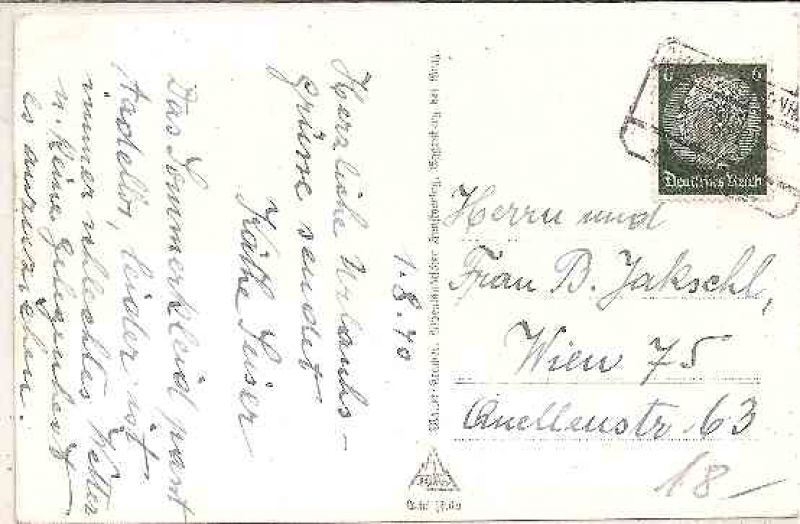 Herzliche Urlaubs-
grüsse sendet
Käthe
1.8.40
Das Sommerkleid passt
tadellos, leider ist
immer schlechtes Wetter
u. keine Gelegenheit
es anzuziehen.
6 6
Deutsches Reich
Herrn und
Frau B. Jakschl,
Wien 75
Quellenstr. 63
18